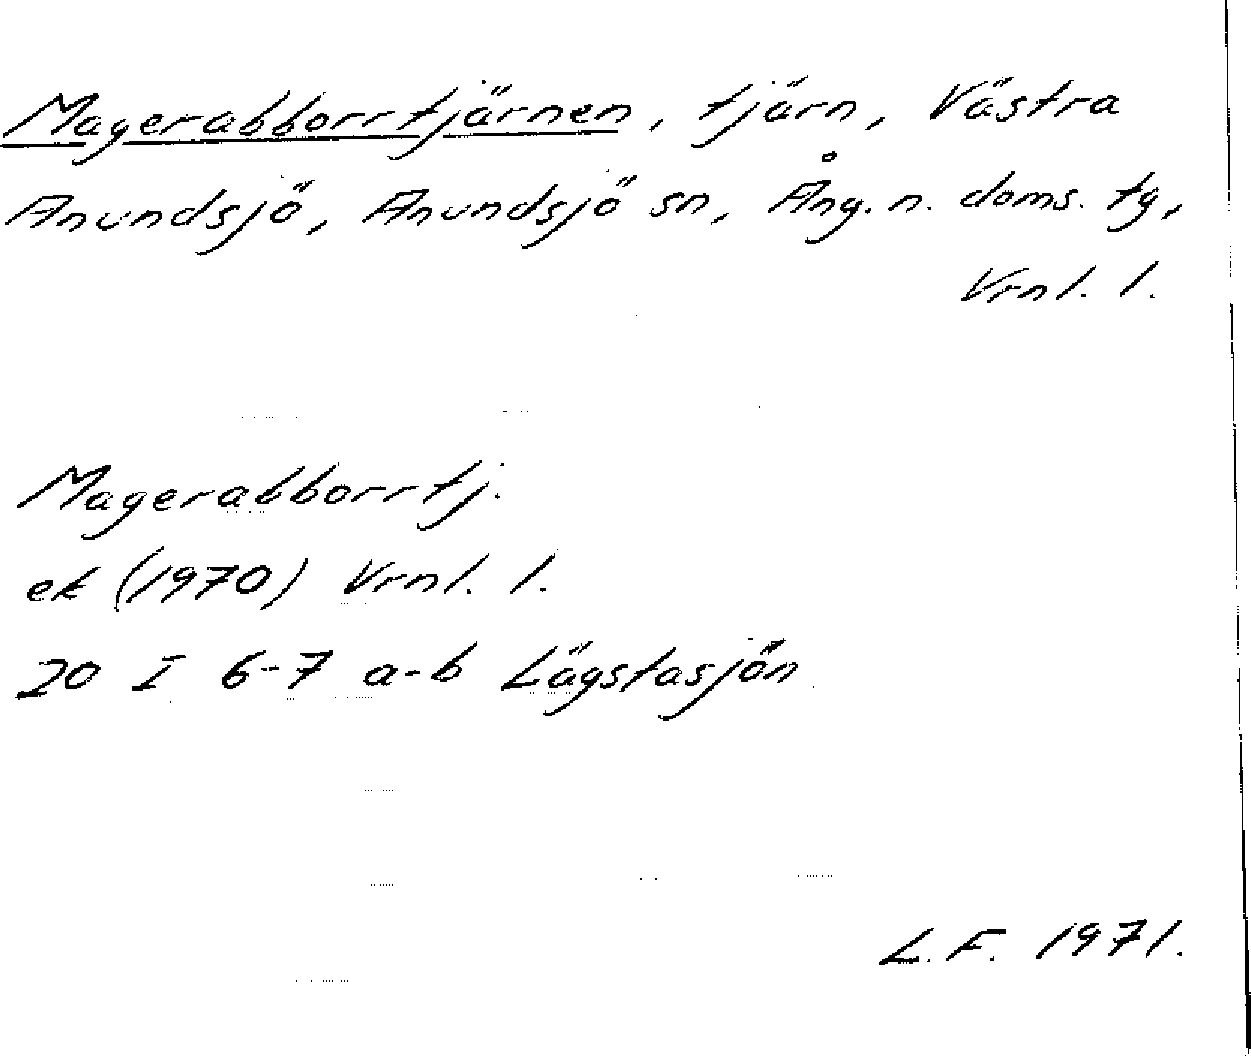 Magerabborrtjärnen, tjärn, Västra
Anundsjö, Anundsjö sn, Ång. n. doms. tg,
Vrnl. l.
Magerabborrtj.
ek (1970) Vrnl. l.
20 I 6-7 a-b Lägstasjön
L.F. 1971.